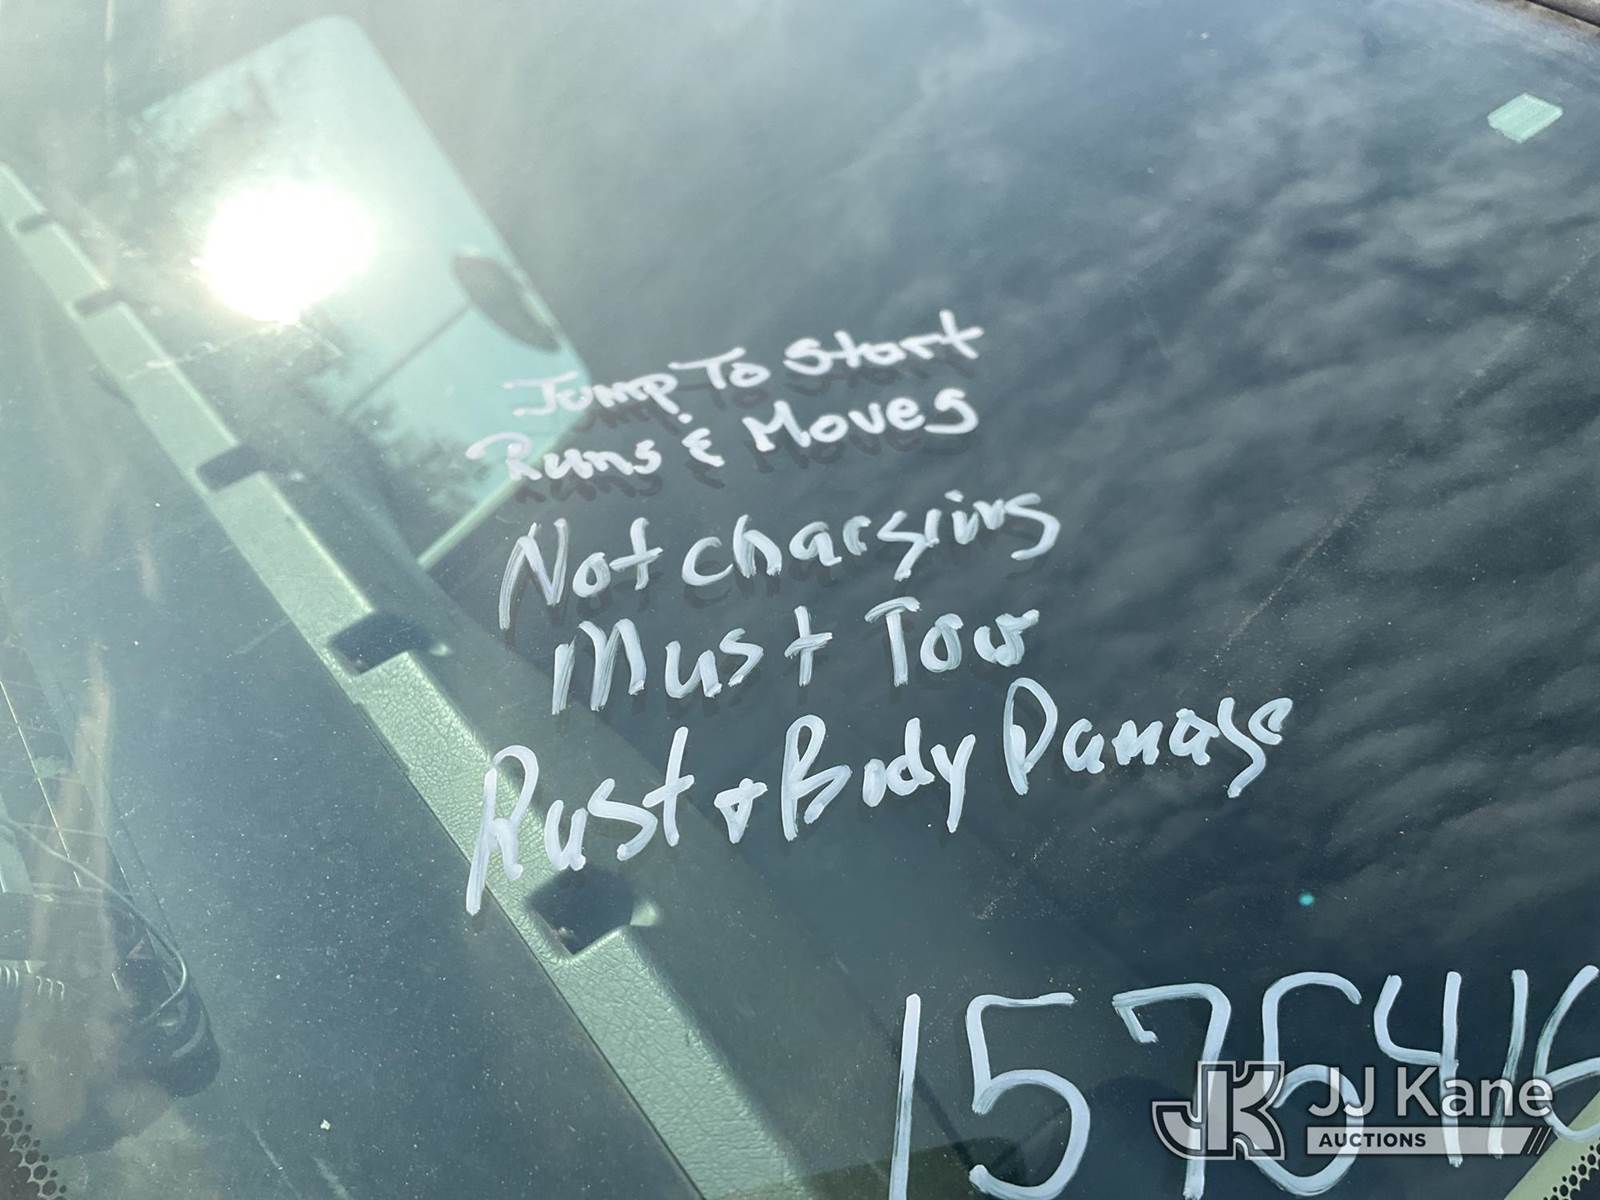 Jump To Start
Runs & Moves
Not charging
Must Tow
Rust & Body Damage
1576416
JJ Kane
AUCTIONS